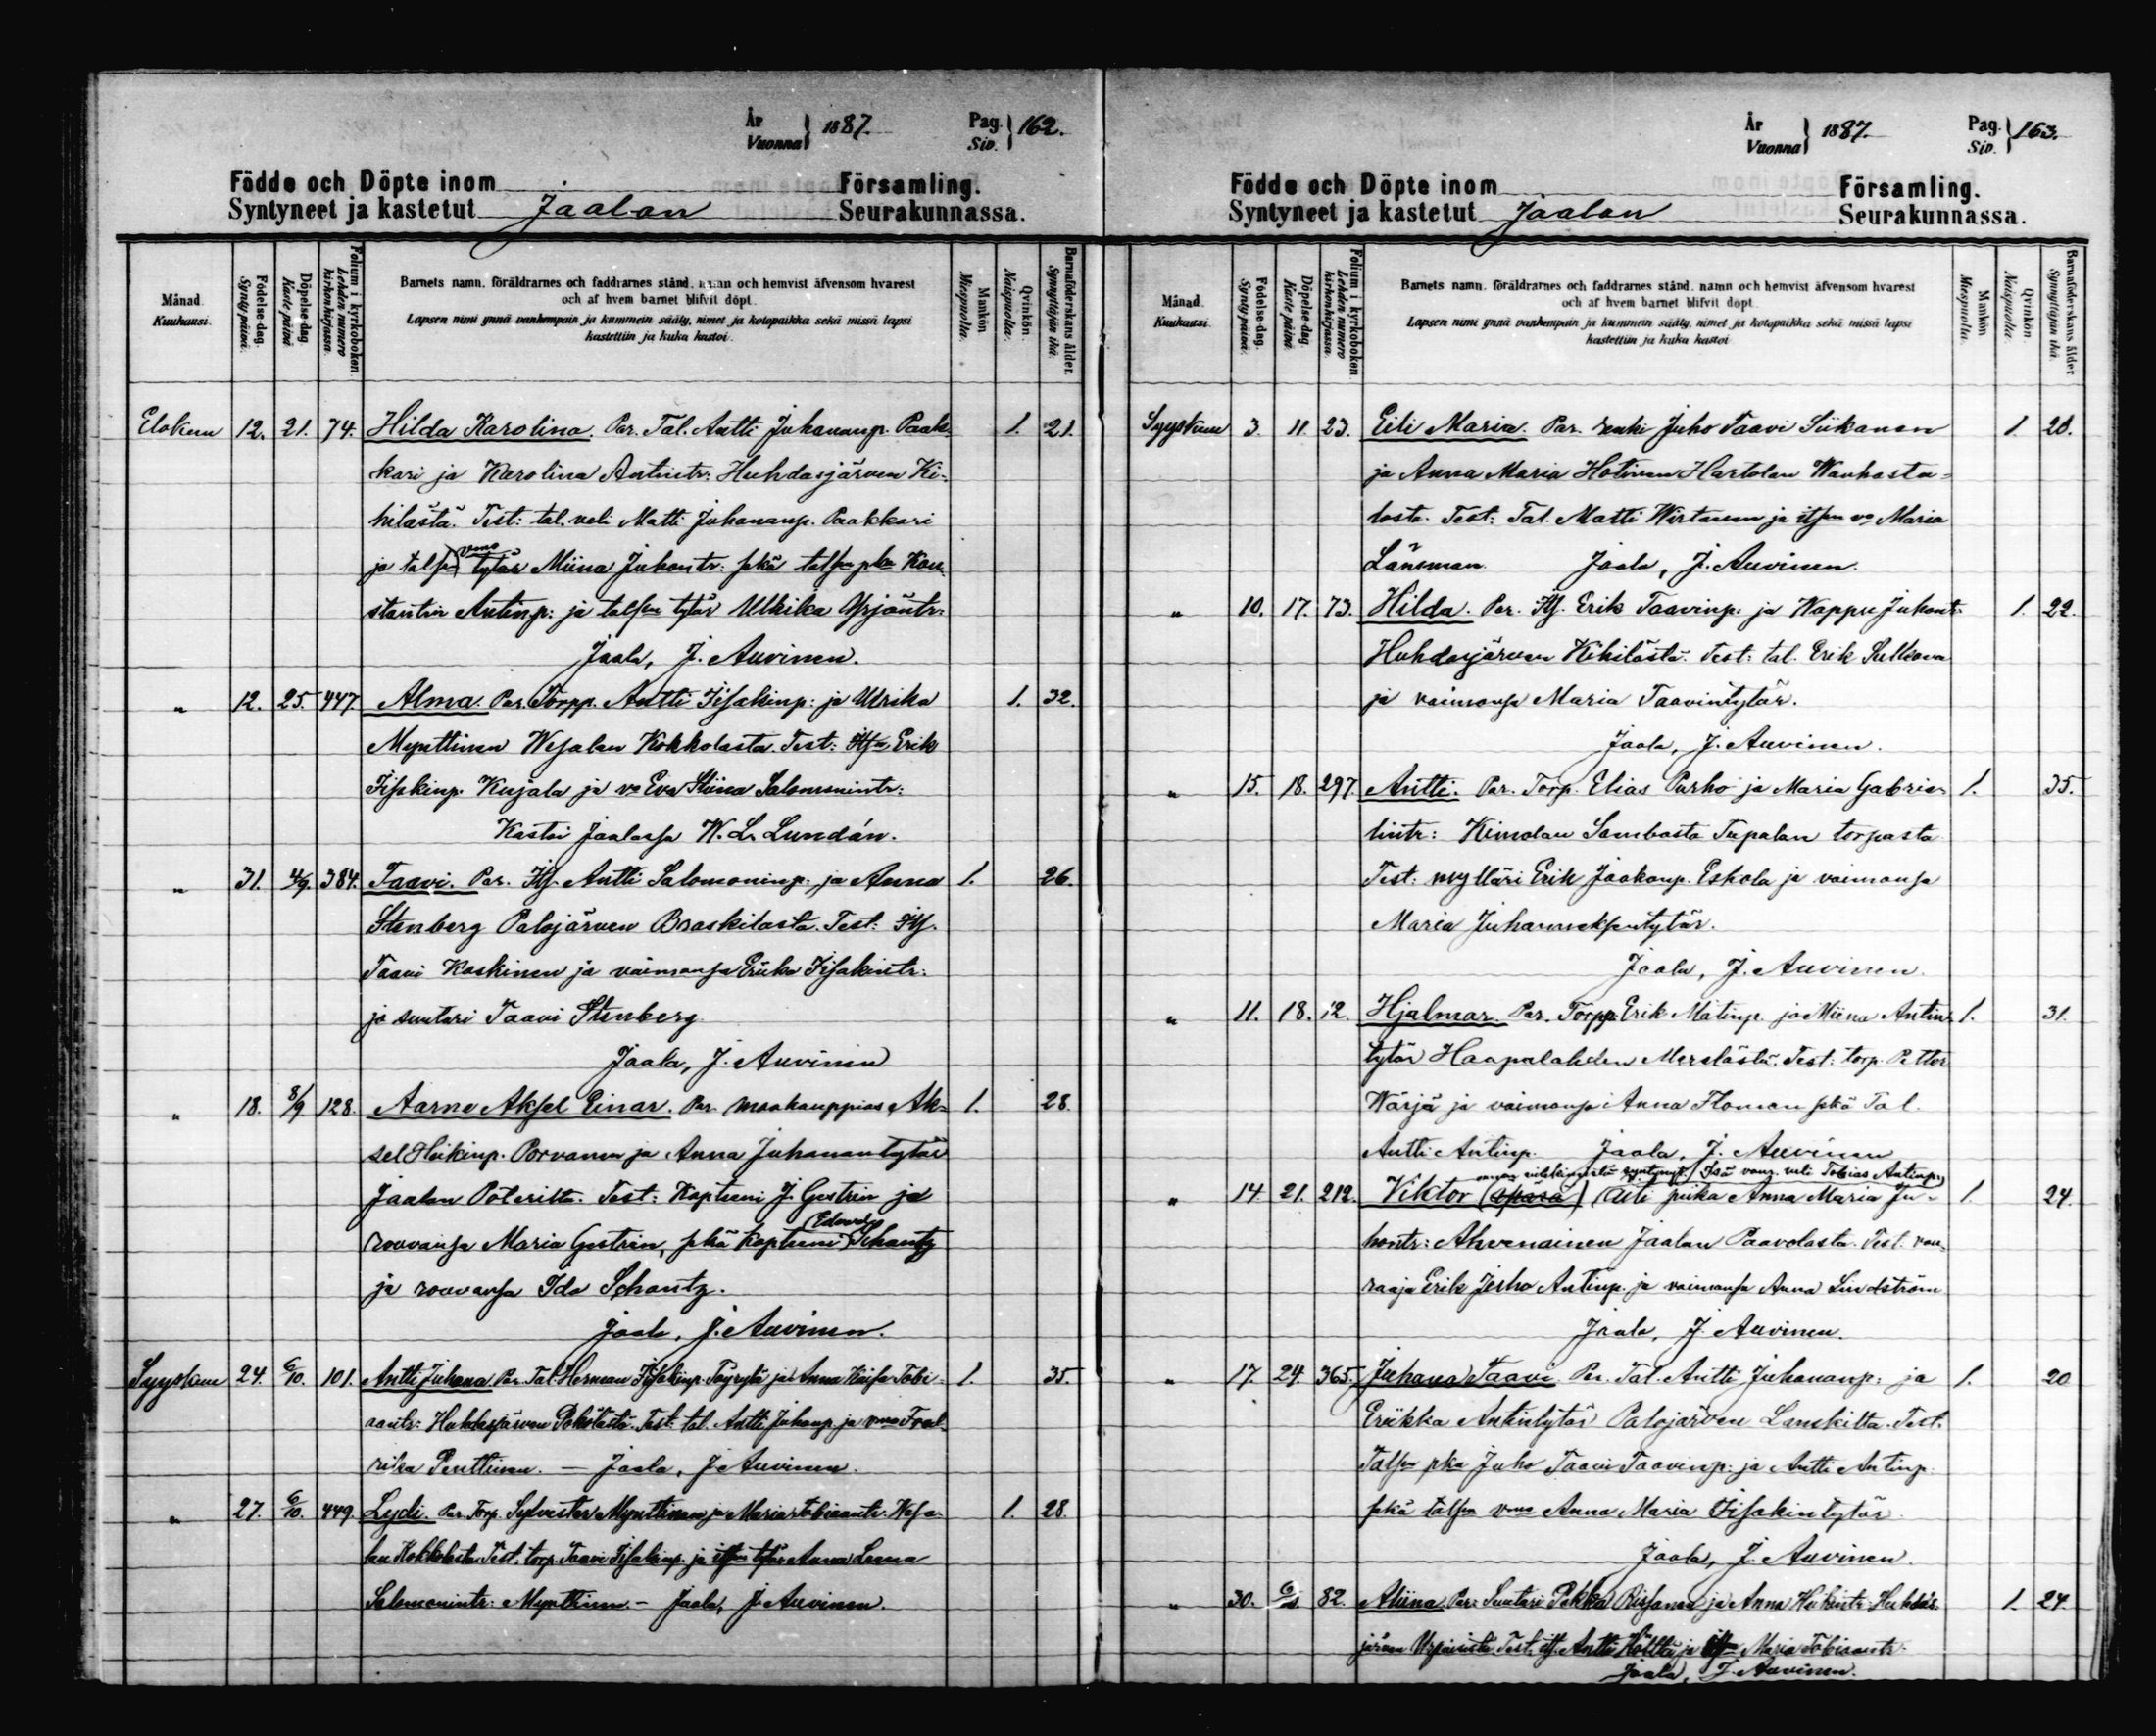 År
Vuonna } 1887.
Pag.
Siv. } 162.
Födde och Döpte inom Församling.
Syntyneet ja kastetut Jaalan Seurakunnassa.
Månad.
Kuukausi.
Födelse-dag.
Synty-päivä.
Döpelse-dag.
Kaste-päivä
Folium i kyrkoboken
Lehden numero
kirkonkirjassa.
Barnets namn, föräldrarnes och faddrarnes stånd, namn och hemvist äfvensom hvarest
och af hvem barnet blifvit döpt.
Lapsen nimi ynnä vanhempain ja kummein sääty, nimet ja kotopaikka sekä missä lapsi
kastettiin ja kuka kastoi.
Mankön
Miespuolia.
Qvinkön.
Naispuolia.
Barnaföderskans ålder.
Synnyttäjän ikä.
Elokuu 12. 21. 74. Hilda Karolina. Par. Tal. Antti Juhananp. Paak- 1. 21.
kari ja Karolina Antintr: Huhdasjärven Ki-
hilästä. Test: tal. veli Matti Juhananp. Paakkari
vmo
ja talsn tytär Miina Juhontr: sekä talsn pka Kon-
stantin Antinp: ja talsn tytär Ulrika Yrjöntr:
Jaala, J. Auvinen.
" 12. 25. 447. Alma. Par. Torpp. Antti Iisakinp: ja Ulrika 1. 32.
Mynttinen Wesalan Kokkolasta. Test: Itsn Erik
Iisakinp. Kujala ja vo Eva Stiina Salomonintr:
Kastoi Jaalassa W. L. Lundán.
" 31. 4/9. 384. Taavi. Par. Its. Antti Salomoninp: ja Anna 1. 26.
Stenberg Palojärven Braskilasta. Test: Its.
Taavi Koskinen ja vaimonsa Eriika Iisakintr:
ja suutari Taavi Stenberg
Jaala, J. Auvinen
" 18. 8/9 128. Aarne Aksel Einar. Par. maakauppias Ak- 1. 28.
sel Heikinp. Porvanen ja Anna Juhanantytär
Jaalan Pöleriltä. Test: Kapteeni J. Gestrin ja
Edvard
rouvansa Maria Gestrin, sekä kapteeni Schantz
ja rouvansa Ida Schantz.
Jaala, J. Auvinen.
Syyskuu 24. 6/10. 101. Antti Juhana Par. Tal. Herman Iisakinp. Töyrylä ja Anna Kaisa Tobi- 1. 35.
aantr: Huhdasjärven Pokölästä. Test: tal. Antti Juhonp. ja vmo Fred-
rika Penttinen. — Jaala, J. Auvinen.
" 27. 6/10. 449. Lydi. Par. Torp. Sylvester Mynttinen ja Maria Tobiaantr. Wesa- 1. 28.
lan Kokkolasta. Test. torp. Taavi Iisakinp. ja itsn tytär Anna Leena
Salomonintr: Mynttinen. - Jaala, J. Auvinen.
År
Vuonna } 1887.
Pag.
Siv. } 163.
Födde och Döpte inom Församling.
Syntyneet ja kastetut Jaalan Seurakunnassa.
Månad.
Kuukausi.
Födelse-dag.
Synty-päivä.
Döpelse-dag.
Kaste-päivä.
Folium i kyrkoboken
Lehden numero
kirkonkirjassa.
Barnets namn, föräldrarnes och faddrarnes stånd, namn och hemvist äfvensom hvarest
och af hvem barnet blifvit döpt.
Lapsen nimi ynnä vanhempain ja kummein sääty, nimet ja kotopaikka sekä missä lapsi
kastettiin ja kuka kastoi
Mankön
Miespuolia.
Qvinkön
Naispuolia.
Barnaföderskans ålder
Synnyttäjän ikä.
Syyskuu 3. 11. 23. Eili Maria. Par. renki Juho Taavi Siikanen 1. 20.
ja Anna Maria Hotinen Hartolan Wanhasta-
losta. Test: Tal. Matti Wirtanen ja itsn vo Maria
Länsman. Jaala, J. Auvinen.
" 10. 17. 73. Hilda. Par. Its. Erik Taavinp: ja Wappu Juhontr. 1. 22.
Huhdasjärven Kihilästä. Test: tal. Erik Sulkava
ja vaimonsa Maria Taavintytär.
Jaala, J. Auvinen.
" 15. 18. 297. Antti. Par. Torp. Elias Parho ja Maria Gabrie- 1. 35.
lintr: Kimolan Sambasta Tupalan torpasta
Test: mylläri Erik Jaakonp. Eskola ja vaimonsa
Maria Juhanneksentytär.
Jaala, J. Auvinen.
" 11. 18. 12. Hjalmar. Par. Torpp. Erik Matinp. ja Miina Antin- 1. 31.
tytär Haapalahden Merslästä. Test: torp. Petter
Wärjä ja vaimonsa Anna Homan sekä Tal.
Antti Antinp. Jaala, J. Auvinen
syntynyt. Isä vang. veli Tobias Antinp:
" 14. 21. 212. Viktor (äpärä) (Äiti piika Anna Maria Ju- 1. 24.
hontr: Ahvenainen Jaalan Paavolasta. Test. vou-
raaja Erik Jesho Antinp. ja vaimonsa Anna Lindström
Jaala, J. Auvinen.
" 17. 24. 365. Juhana Taavi. Par. Tal. Antti Juhananp: ja 1. 20
Eriikka Antintytär Palojärven Lanskilta. Test.
Talsn pka Juho Taavi Taavinp: ja Antti Antinp.
sekä talsn vmo Anna Maria Iisakintytär.
Jaala, J. Auvinen.
" 30. 82. Aliina. Par: Suutari Pekka Rissanen ja Anna Heikintr: Huhdas- 1. 24.
järven Test. its. Antti Hölttä ja itsn Maria Tobiaantr.
Jaala, J. Auvinen.